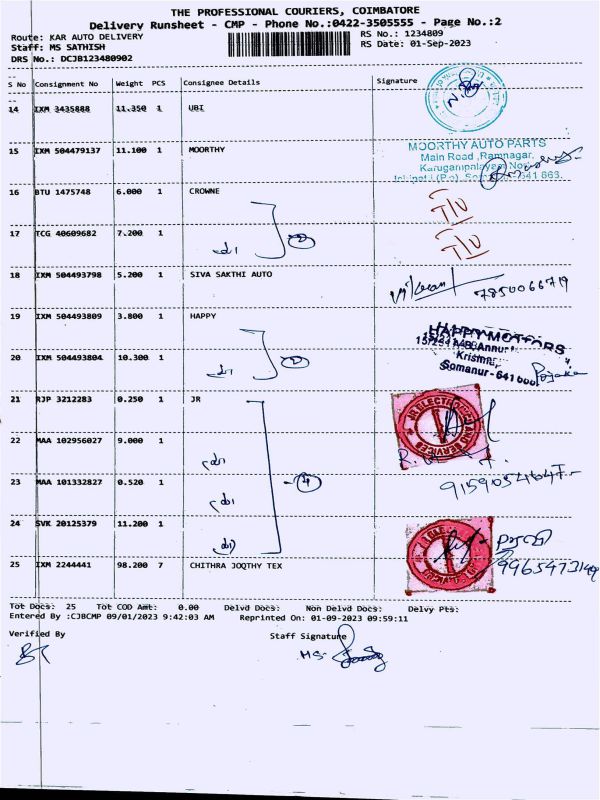 THE PROFESSIONAL COURIERS, COIMBATORE
Delivery Runsheet - CMP - Phone No.:0422-3505555 - Page No.:2
Route: KAR AUTO DELIVERY
RS No.: 1234809
Staff: MS SATHISH
RS Date: 01-Sep-2023
DRS No.: DCJB123480902
S No Consignment No Weight PCS Consignee Details Signature
14 IXM 3435888 11.350 1 UBI
15 IXM 504479137 11.100 1 MOORTHY
MOORTHY AUTO PARTS
Main Road, Ramnagar,
Karugampalayam
641 663.
16 BTU 1475748 6.000 1 CROWNE
17 TCG 40609682 7.200 1
18 IXM 504493798 5.200 1 SIVA SAKTHI AUTO
7850066719
19 IXM 504493809 3.800 1 HAPPY
HAPPY MOTORS
Somanur - 641
20 IXM 504493804 10.300 1
21 RJP 3212283 0.250 1 JR
JR ELECTRICAL AND SERVICES
22 MAA 102956027 9.000 1
23 MAA 101332827 0.520 1
9159054647
24 SVK 20125379 11.200 1
25 IXM 2244441 98.200 7 CHITHRA JOQTHY TEX
9965473149
Tot Docs: 25 Tot COD Amt: 0.00 Delvd Docs: Non Delvd Docs: Delvy Pts:
Entered By :CJBCMP 09/01/2023 9:42:03 AM Reprinted On: 01-09-2023 09:59:11
Verified By
Staff Signature
MS